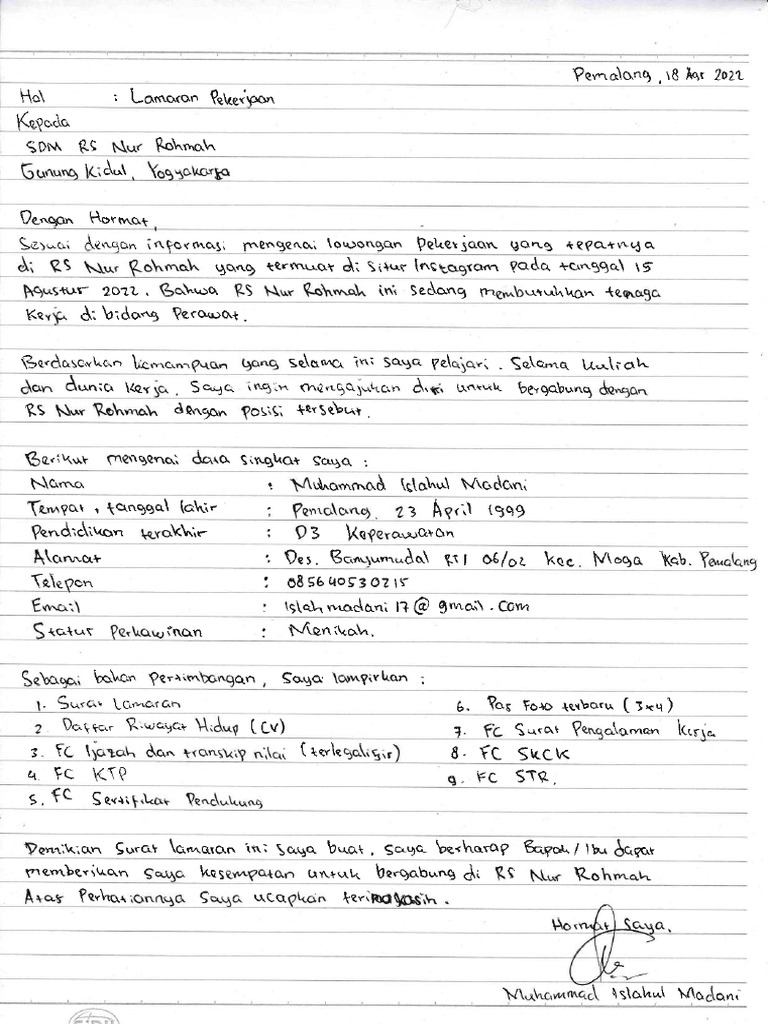 Pemalang, 18 Agt 2022
Hal : Lamaran Pekerjaan
Kepada
SDM RS Nur Rohmah
Gunung Kidul, Yogyakarta
Dengan Hormat,
Sesuai dengan informasi mengenai lowongan Pekerjaan yang tepatnya
di RS Nur Rohmah yang termuat di situs Instagram pada tanggal 15
Agustus 2022. Bahwa RS Nur Rohmah ini sedang membutuhkan tenaga
Kerja di bidang Perawat.
Berdasarkan kemampuan yang selama ini saya pelajari. Selama kuliah
dan dunia kerja. Saya ingin mengajukan diri untuk bergabung dengan
RS Nur Rohmah dengan posisi tersebut.
Berikut mengenai data singkat saya :
Nama : Muhammad Islahul Madani
Tempat, tanggal lahir : Pemalang, 23 April 1999
Pendidikan terakhir : D3 Keperawatan
Alamat : Des. Banyumudal RT/ 06/02 kec. Moga Kab. Pemalang
Telepon : 085640530215
Email : Islahmadani17@gmail.com
Status Perkawinan : Menikah.
Sebagai bahan Pertimbangan, Saya lampirkan :
1. Surat Lamaran
2. Daftar Riwayat Hidup (CV)
3. FC Ijazah dan transkip nilai (terlegalisir)
4. FC KTP
5. FC Sertifikat Pendukung
6. Pas Foto terbaru (3x4)
7. FC Surat Pengalaman Kerja
8. FC SKCK
9. FC STR.
Demikian Surat lamaran ini saya buat, saya berharap Bapak/Ibu dapat
memberikan saya kesempatan untuk bergabung di RS Nur Rohmah
Atas Perhatiannya saya ucapkan terimakasih.
Hormat Saya,
Muhammad Islahul Madani